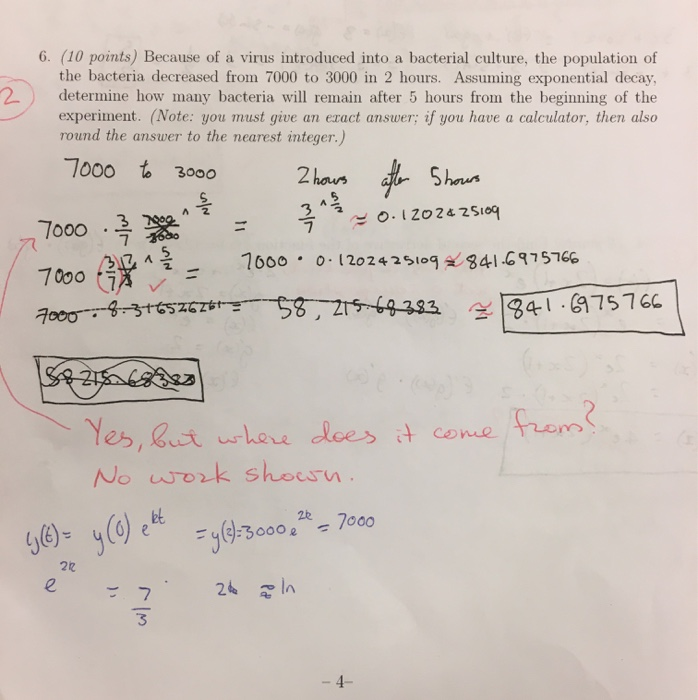 6. (10 points) Because of a virus introduced into a bacterial culture, the population of
the bacteria decreased from 7000 to 3000 in 2 hours. Assuming exponential decay,
2
determine how many bacteria will remain after 5 hours from the beginning of the
experiment. (Note: you must give an exact answer; if you have a calculator, then also
round the answer to the nearest integer.)
7000 to 3000 2 hours after 5 hours
7000 · 3/7 7000/3000 ^ 5/2 = 3/7 ^ 5/2 ≈ 0.1202425109
7000 · (3/7) ^ 5/2 ✓ = 7000 · 0.1202425109 ≈ 841.6975766
7000 · 8.316526261 = 58,215.68383 ≅ 841.6975766
58215.68383
Yes, but where does it come from?
No work shown.
y(t) = y(0) e^kt = y(2)=3000e^2k = 7000
e^2k = 7/3 2k ≈ ln
– 4–